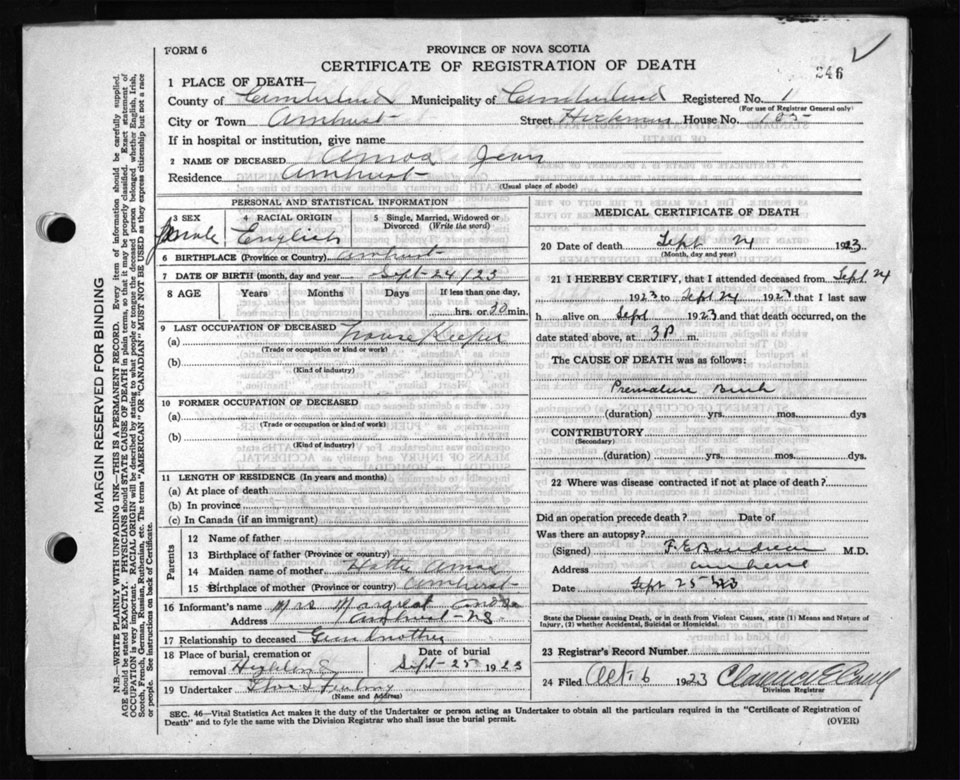 FORM 6
PROVINCE OF NOVA SCOTIA
CERTIFICATE OF REGISTRATION OF DEATH
246
1 PLACE OF DEATH—
County of Cumberland Municipality of Cumberland Registered No. 1
(For use of Registrar General only)
City or Town Amherst Street Hickman House No. 165
If in hospital or institution, give name
2 NAME OF DECEASED Amos Jean
Residence Amherst
(Usual place of abode)
PERSONAL AND STATISTICAL INFORMATION
3 SEX Female
4 RACIAL ORIGIN English
5 Single, Married, Widowed or Divorced (Write the word)
6 BIRTHPLACE (Province or Country) Amherst
7 DATE OF BIRTH (month, day and year) Sept 24/23
8 AGE Years Months Days If less than one day,
hrs. or 30 min.
9 LAST OCCUPATION OF DECEASED
(a) House Keeper
(Trade or occupation or kind or work)
(b)
(Kind of industry)
10 FORMER OCCUPATION OF DECEASED
(a)
(Trade or occupation or kind or work)
(b)
(Kind of industry)
11 LENGTH OF RESIDENCE (In years and months)
(a) At place of death
(b) In province
(c) In Canada (if an immigrant)
Parents
12 Name of father
13 Birthplace of father (Province or country)
14 Maiden name of mother Hattie Amos
15 Birthplace of mother (Province or country) Amherst
16 Informant's name Mrs Margreat Amos
Address Amherst NS
17 Relationship to deceased Grandmother
18 Place of burial, cremation or removal Highland
Date of burial Sept 25 1923
19 Undertaker
(Name and Address)
MEDICAL CERTIFICATE OF DEATH
20 Date of death Sept 24 1923.
(Month, day and year)
21 I HEREBY CERTIFY, that I attended deceased from Sept 24
1923 to Sept 24 1923 that I last saw
h alive on Sept 1923 and that death occurred, on
date stated above, at 3 P m.
The CAUSE OF DEATH was as follows:
Premature Birth
(duration) yrs. mos. dys
CONTRIBUTORY
(Secondary)
(duration) yrs. mos. dys.
22 Where was disease contracted if not at place of death?
Did an operation precede death? Date of
Was there an autopsy?
(Signed) F. E. Boudreau M.D.
Address Amherst
Date Sept 25 1923
State the Disease causing Death, or in death from Violent Causes, state (1) Means and Nature of
Injury, (2) whether Accidental, Suicidal or Homicidal.
23 Registrar's Record Number
24 Filed Oct 6 1923 Clarence E
Division Registrar
SEC. 46—Vital Statistics Act makes it the duty of the Undertaker or person acting as Undertaker to obtain all the particulars required in the "Certificate of Registration of
Death" and to fyle the same with the Division Registrar who shall issue the burial permit.
(OVER)
MARGIN RESERVED FOR BINDING
N.B.—WRITE PLAINLY WITH UNFADING INK—THIS IS A PERMANENT RECORD. Every item of information should be carefully supplied.
AGE should be stated EXACTLY. PHYSICIANS should STATE CAUSE OF DEATH in plain terms, so that it may be properly classified. Exact statement of
OCCUPATION is very important. RACIAL ORIGIN will be described by stating to what people or tongue the deceased person belonged whether English, Irish,
Scotch, French, German, Russian, Ruthenian, etc. The terms "AMERICAN" OR "CANADIAN" MUST NOT BE USED as they express citizenship but not a race
or people. See instructions on back of Certificate.